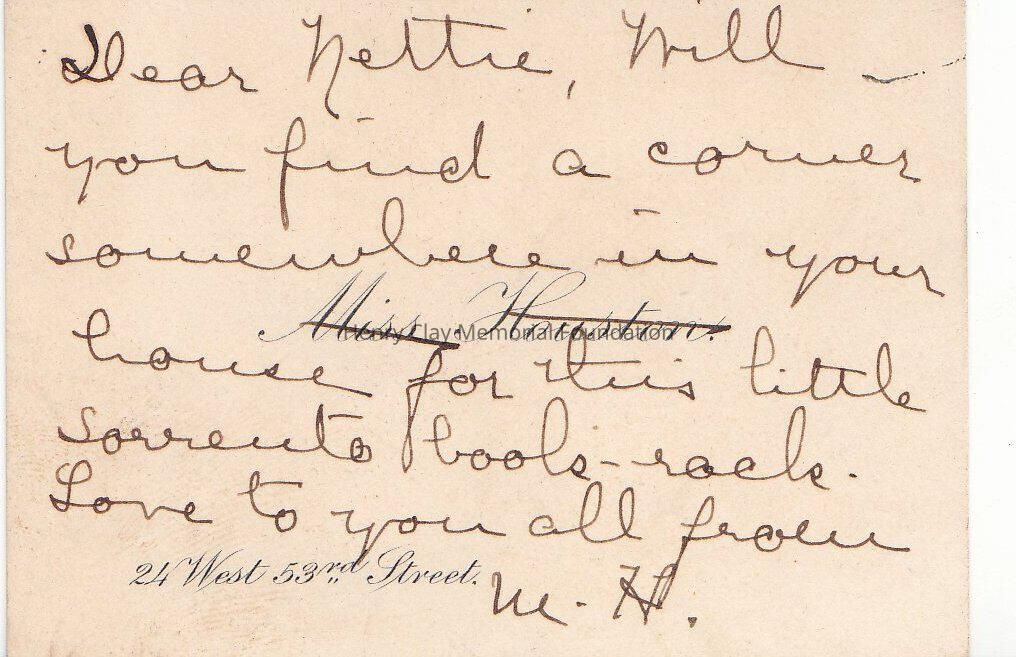 Dear Nettie, Will
you find a corner
somewhere in your
Miss Huston.
Henry Clay Memorial Foundation
house for this little
Sorrento book-rack.
Love to you all from
24 West 53rd Street.
M. H.